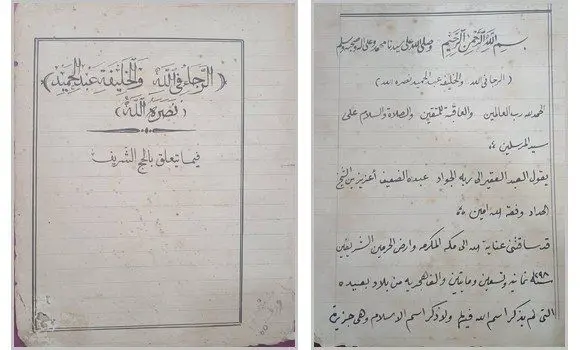 (الرجاء في الله والخليفة عبد الحميد)
(نصره الله)
فيما يتعلق بالحج الشريف
بسم الله الرحمن الرحيم وصلى الله على سيدنا محمد وعلى آله وصحبه وسلم
(الرجا في الله والخليفة عبد الحميد نصره الله)
الحمد لله رب العالمين والعاقبة للمتقين والصلاة والسلام على
سيد المرسلين
يقول العبد الفقير الى ربه الجواد عبده الضعيف أعزيز بن الشيخ
الحداد وفقه الله امين
قد ساقتني عناية الله الى مكة المكرمه وارض الحرمين الشريفين
سنة ١٢٩٨ ثمانية وتسعين ومايتين والف هجريه من بلاد بعيده
التي لم يذكر اسم الله فيها ولا ذكر اسم الاسلام وهي جزيرة